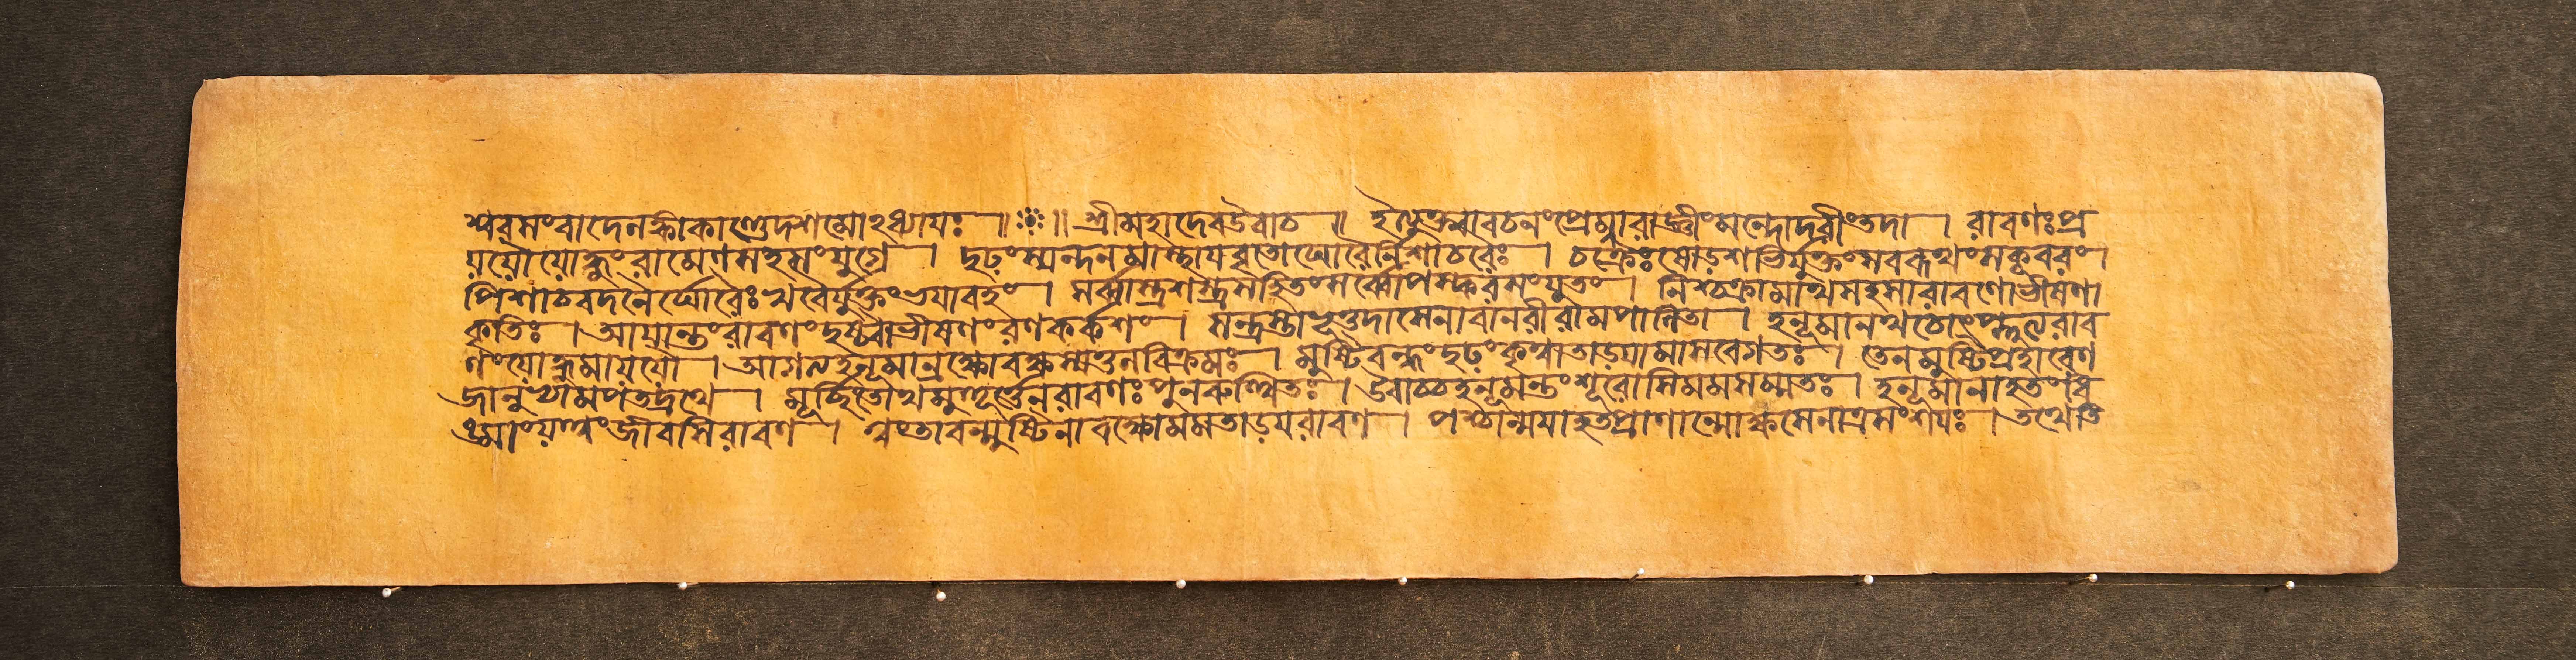 শ্বরসংবাদে লঙ্কাকাণ্ডে দশমোঽধ্যায়ঃ ॥ ❉ ॥ শ্রীমহাদেব উবাচ ॥ ইত্যুক্ত্বা বচনং প্রেম্ণা রাজ্ঞীং মন্দোদরীং তদা । রাবণঃ প্র
যযৌ যোদ্ধুং রামেণ সহ সংযুগে । দৃঢং স্যন্দনমাস্থায বৃতো ঘোরৈর্নিশাচরৈঃ । চক্রৈঃ ষোডশভির্যুক্তং সবরূথং সকূবরং ।
পিশাচবদনৈর্ঘোরৈঃ খরৈর্যুক্তং ভযাবহং । সর্ব্বাস্ত্রশস্ত্রসহিতং সর্ব্বোপস্করসংযুতং । নিশ্চক্রামাথ সহসা রাবণো ভীষণা
কৃতিঃ । আযান্তং রাবণং দৃষ্ট্বা ভীষণং রণকর্কশং । সন্ত্রস্তাভূত্তদা সেনা বানরী রামপালিতা । হনূমানথ চোৎপ্লুত্য রাব
ণং যোদ্ধুমাযযৌ । আগত্য হনূমান্রক্ষোবক্ষস্যতুলবিক্রমঃ । মুষ্টিবন্ধং দৃঢং কৃত্বা তাডযামাস বেগতঃ । তেন মুষ্টিপ্রহারেণ
জানুভ্যামপতদ্রথে । মূর্চ্ছিতোথ মুহূর্ত্তেন রাবণঃ পুনরুত্থিতঃ । উবাচ চ হনূমন্তং শূরোসি মম সম্মতঃ । হনূমানাহ তং ধি
ঙ্মাং যস্ত্বং জীবসি রাবণ । ত্বং তাবন্মুষ্টিনা বক্ষো মম তাডয রাবণ । পশ্চান্মযা হতপ্রাণান্মোক্ষ্যসে নাত্র সংশযঃ । তথেতি